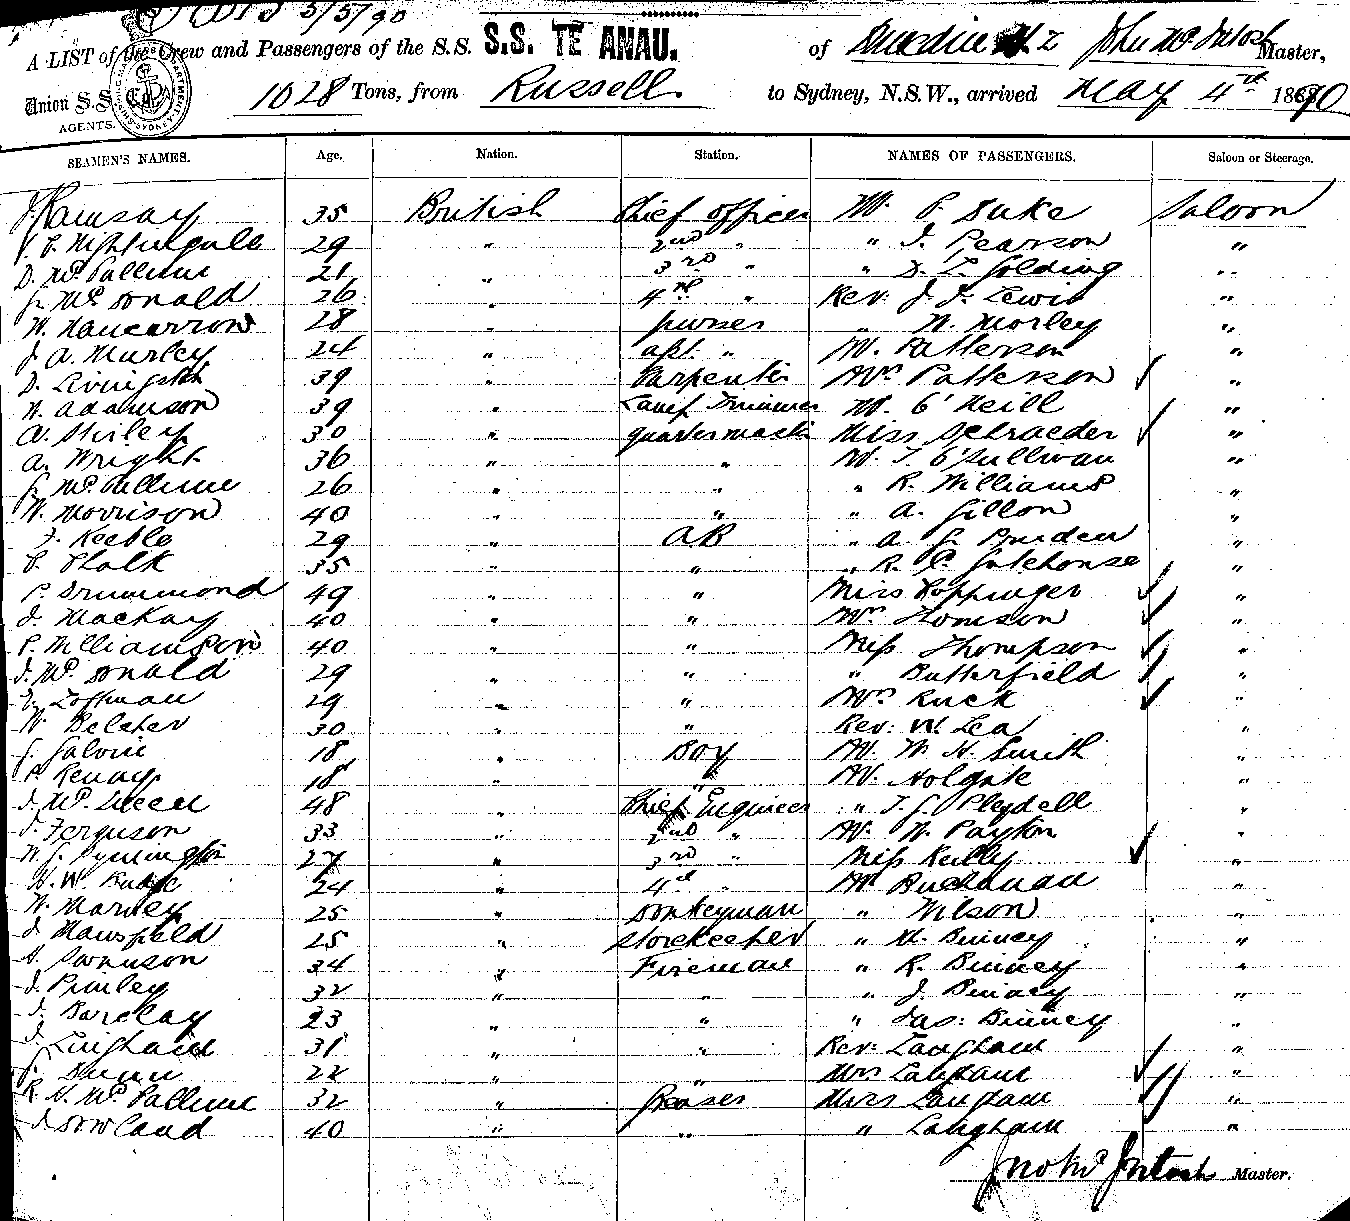 5/5/90
A LIST of the Crew and Passengers of the S.S. S.S. TE ANAU. of Dunedin N Z John McIntosh Master,
Union S.S. Co. AGENTS. 1028 Tons, from Russell. to Sydney, N.S.W., arrived May 4th 1890
SEAMEN'S NAMES. Age. Nation. Station. NAMES OF PASSENGERS. Saloon or Steerage.
J. Ramsay 35 British Chief Officer Mr. P. Duke Saloon
Nightingale 29 " 2nd " " J. Pearson "
D. McCallum 21 " 3rd " " D. L. Golding "
J. McDonald 26 " 4th " Rev. J. J. Lewis "
W. Nancarrow 28 " purser " W. Morley "
J. A. Murley 24 " asst. " Mr. Patterson "
D. Livingston 39 " Carpenter Mrs Patterson "
W. Adamson 39 " Lamp Trimmer Mr. O'Neill "
A. Shirley 30 " quartermaster Miss Schraeder "
A. Wright 36 " " Mr. T. O'Sullivan "
J. McCallum 26 " " " R. Williams "
W. Morrison 40 " " " A. Gillon "
J. Keeble 29 " AB " A. J. Burden "
C. Chalk 35 " " " R. C. Gatehouse "
P. Drummond 49 " " Miss Coppinger "
J. Mackay 40 " " Mrs Thomson "
P. Williamson 40 " " Miss Thompson "
J. McDonald 29 " " " Butterfield "
Hoffman 29 " " Mrs Ruck "
W. Belcher 30 " " Rev: W. Lea "
J. Galvin 18 " Boy Mr. W. H. Smith "
P. Kenay 18 " " Mr. Holgate "
J. McQueen 48 " Chief Engineer " T. G. Pleydell "
J. Ferguson 33 " 2nd " Mr. W. Payton "
W. J. Symington 27 " 3rd " Miss Reilly "
H. W. Rudge 24 " 4th " Mr Buchanan "
W. Manley 25 " Donkeyman " Wilson "
J. Mansfield 25 " Storekeeper " H. Binney "
S. Swanson 34 " Fireman " R. Binney "
J. Pimley 32 " " " J. Binney "
J. Barclay 23 " " " Jas: Binney "
J. Lingham 31 " " Rev: Langham "
J. Dunn 22 " " Mrs Langham "
R. H. McCallum 32 " Greaser Miss Langham "
J. Dowland 40 " " " Langham "
Jno McIntosh Master.